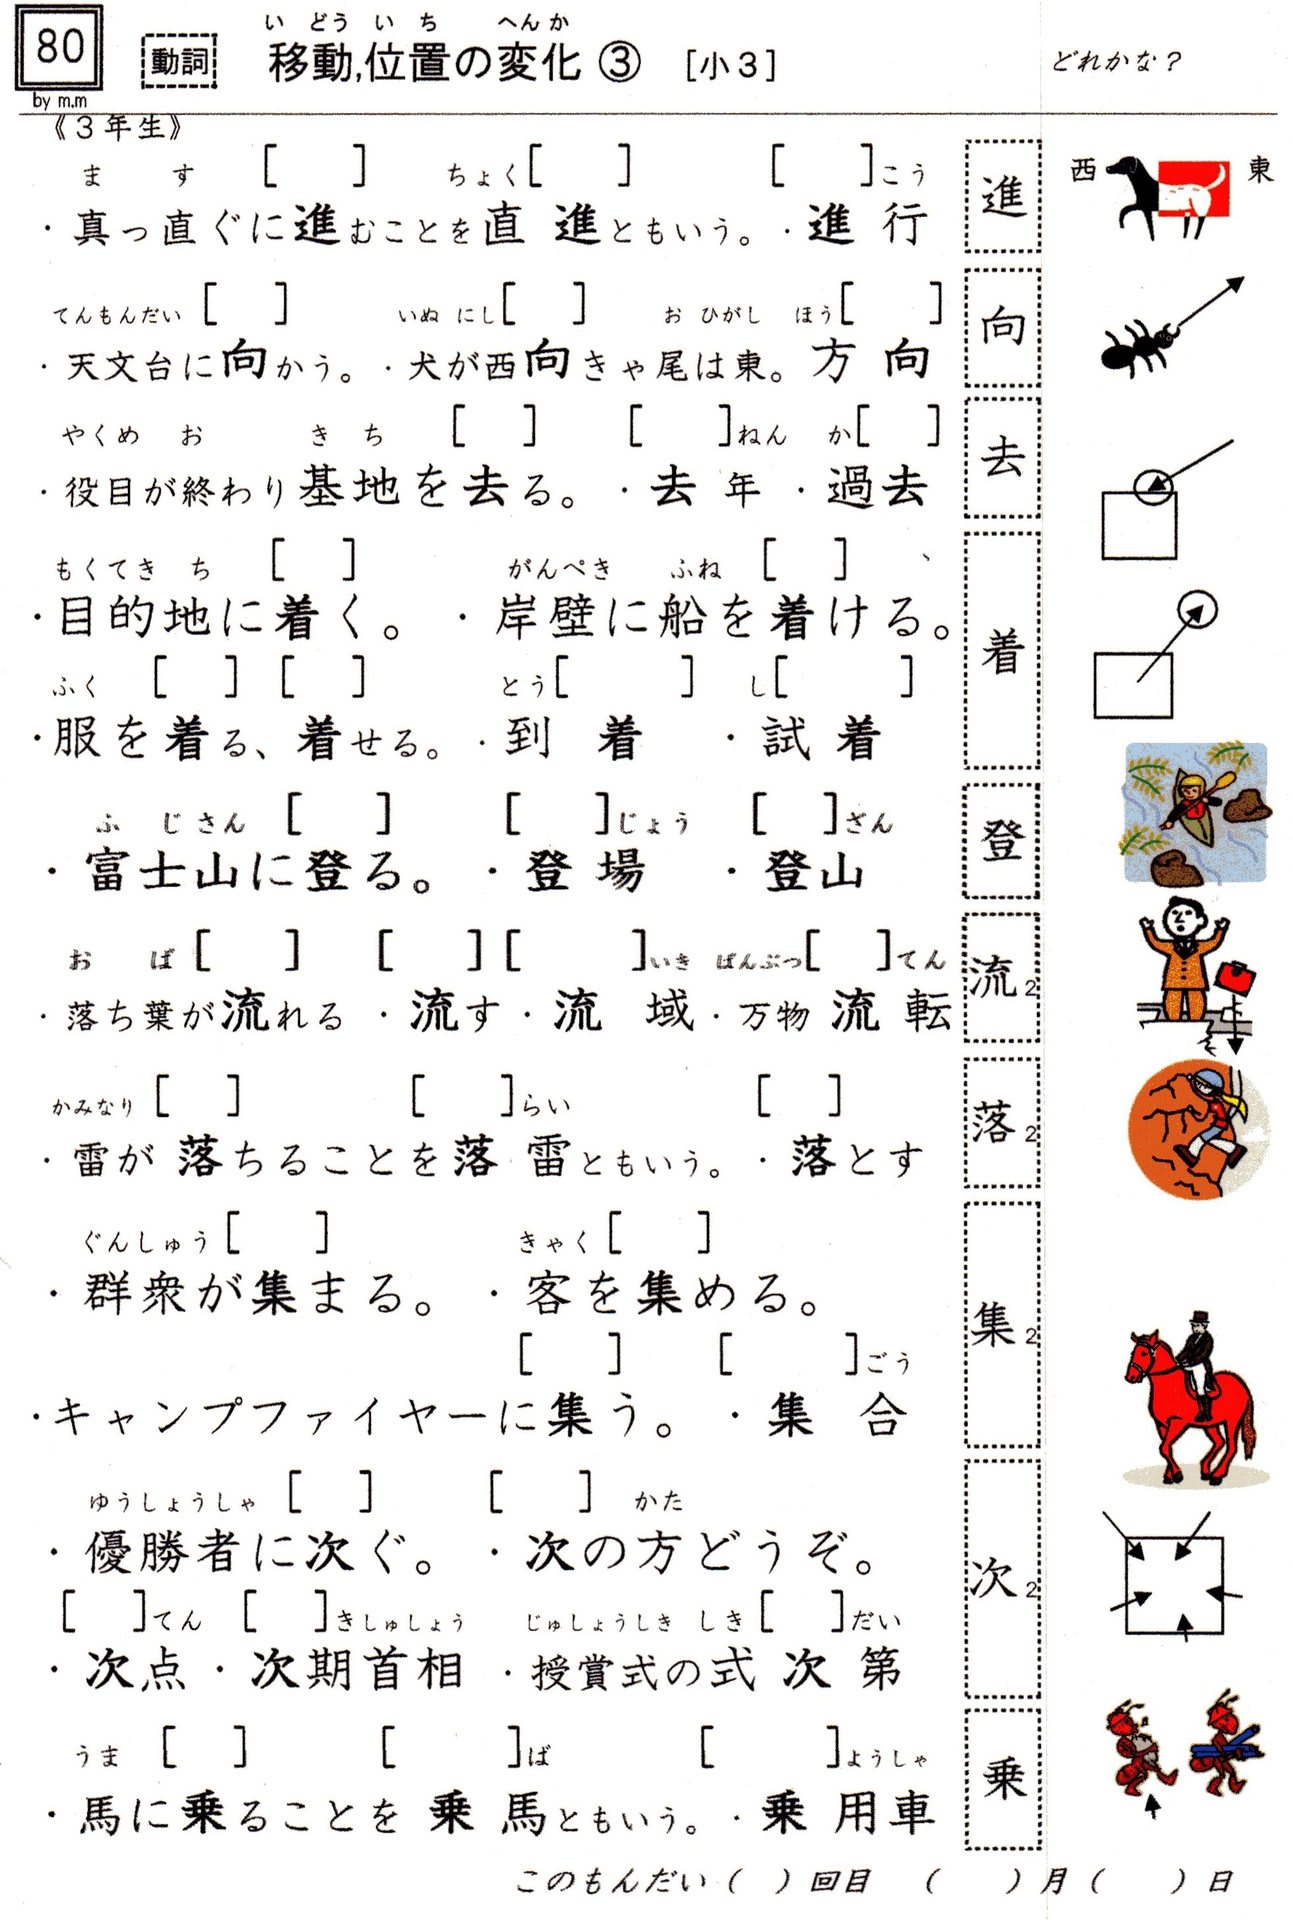 80
by m.m
動詞
い どう い ち へん か
移動,位置の変化 ③ [小3]
どれかな?
《3年生》
ま す [ ] ちょく[ ] [ ]こう
・真っ直ぐに進むことを直進ともいう。・進行
進
西 東
てんもんだい [ ] いぬ にし[ ] お ひがし ほう[ ]
・天文台に向かう。・犬が西向きゃ尾は東。方向
向
やくめ お き ち [ ] [ ]ねん か[ ]
・役目が終わり基地を去る。・去年・過去
去
もくてき ち [ ] がんぺき ふね [ ]
・目的地に着く。・岸壁に船を着ける。
着
ふく [ ] [ ] とう[ ] し[ ]
・服を着る、着せる。・到着 ・試着
ふ じ さん [ ] [ ]じょう [ ]ざん
・富士山に登る。・登場 ・登山
登
お ば [ ] [ ] [ ]いき ばんぶつ[ ]てん
・落ち葉が流れる ・流す・流域・万物流転
流2
かみなり [ ] [ ]らい [ ]
・雷が落ちることを落雷ともいう。・落とす
落2
ぐんしゅう [ ] きゃく [ ]
・群衆が集まる。・客を集める。
集2
[ ] [ ]ごう
・キャンプファイヤーに集う。・集合
ゆうしょうしゃ [ ] [ ] かた
・優勝者に次ぐ。・次の方どうぞ。
次2
[ ]てん [ ]きしゅしょう じゅしょうしき しき[ ]だい
・次点・次期首相 ・授賞式の式次第
うま [ ] [ ]ば [ ]ようしゃ
・馬に乗ることを乗馬ともいう。・乗用車
乗
このもんだい( )回目 ( )月( )日